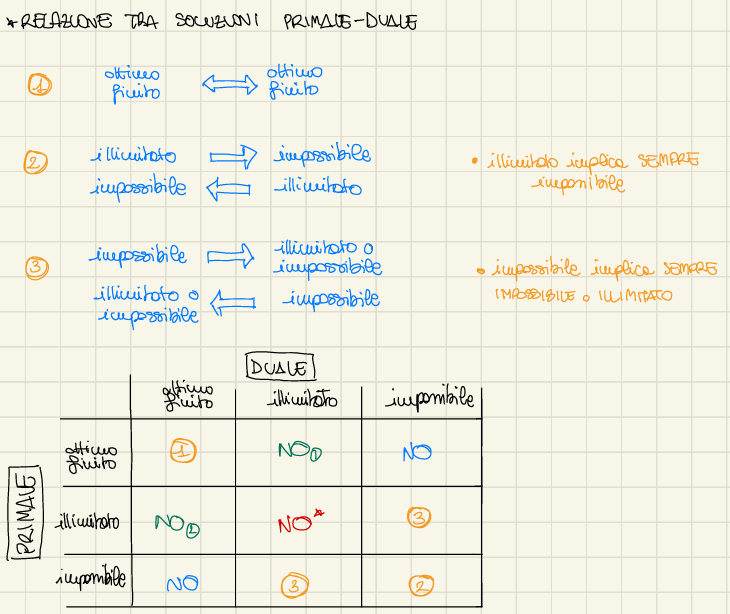 * RELAZIONE TRA SOLUZIONI PRIMALE-DUALE
1 ottimo finito ⟺ ottimo finito
2 illimitato ⟹ impossibile
impossibile ⟸ illimitato
• illimitato implica SEMPRE
impossibile
3 impossibile ⟹ illimitato o impossibile
illimitato o impossibile ⟸ impossibile
• impossibile implica SEMPRE
IMPOSSIBILE o ILLIMITATO
DUALE
ottimo finito illimitato impossibile
PRIMALE
ottimo finito 1 NO1 NO
illimitato NO2 NO* 3
impossibile NO 3 2